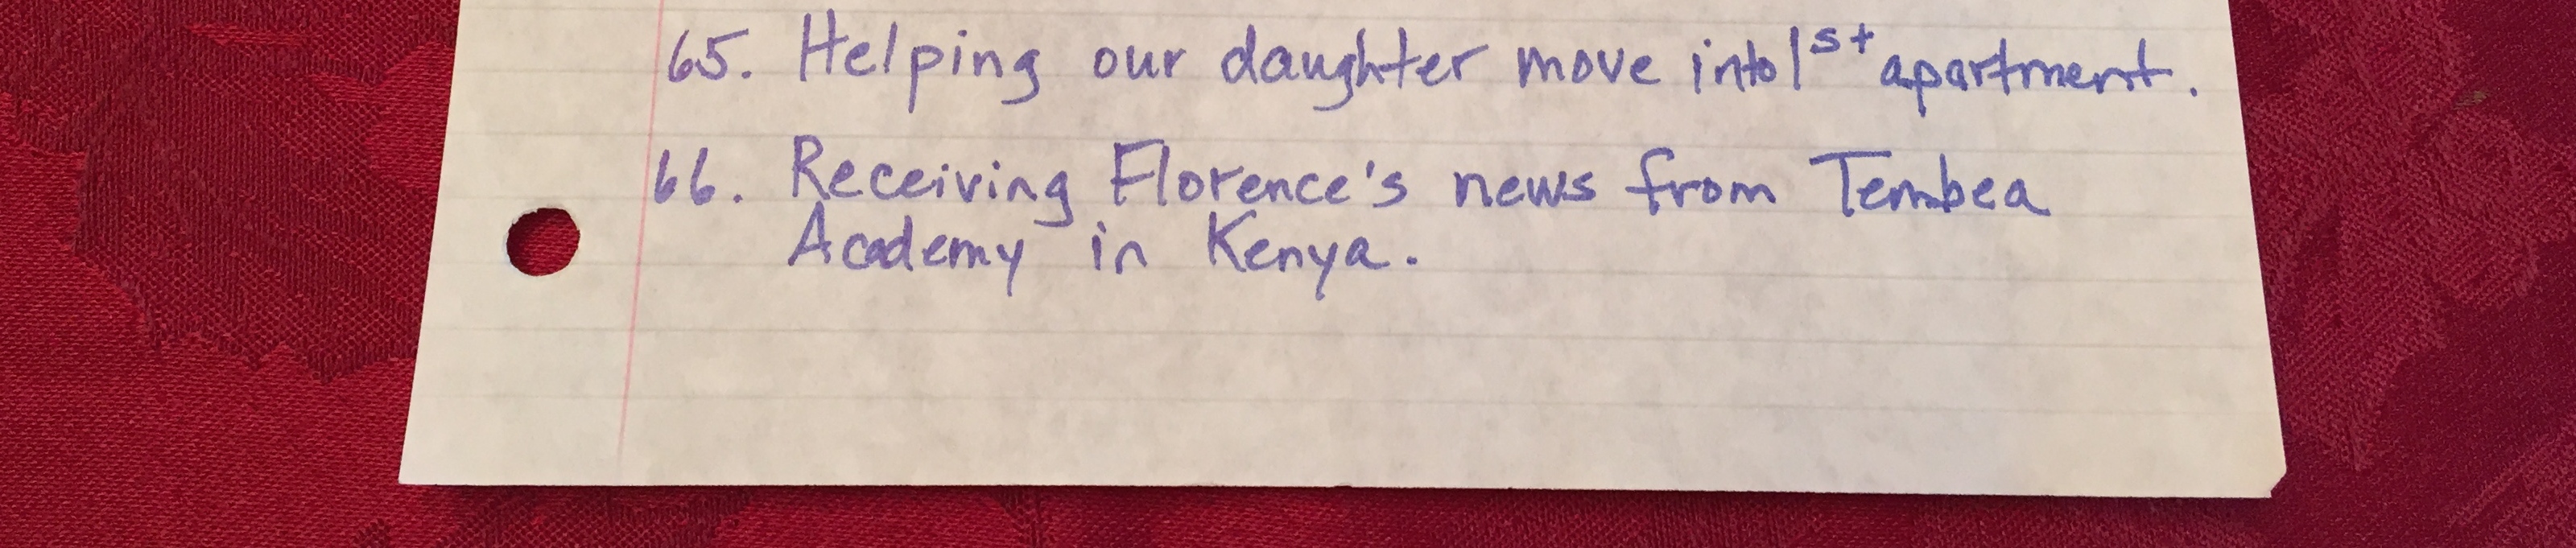 65. Helping our daughter move into 1st apartment.
66. Receiving Florence's news from Tembea
Academy in Kenya.